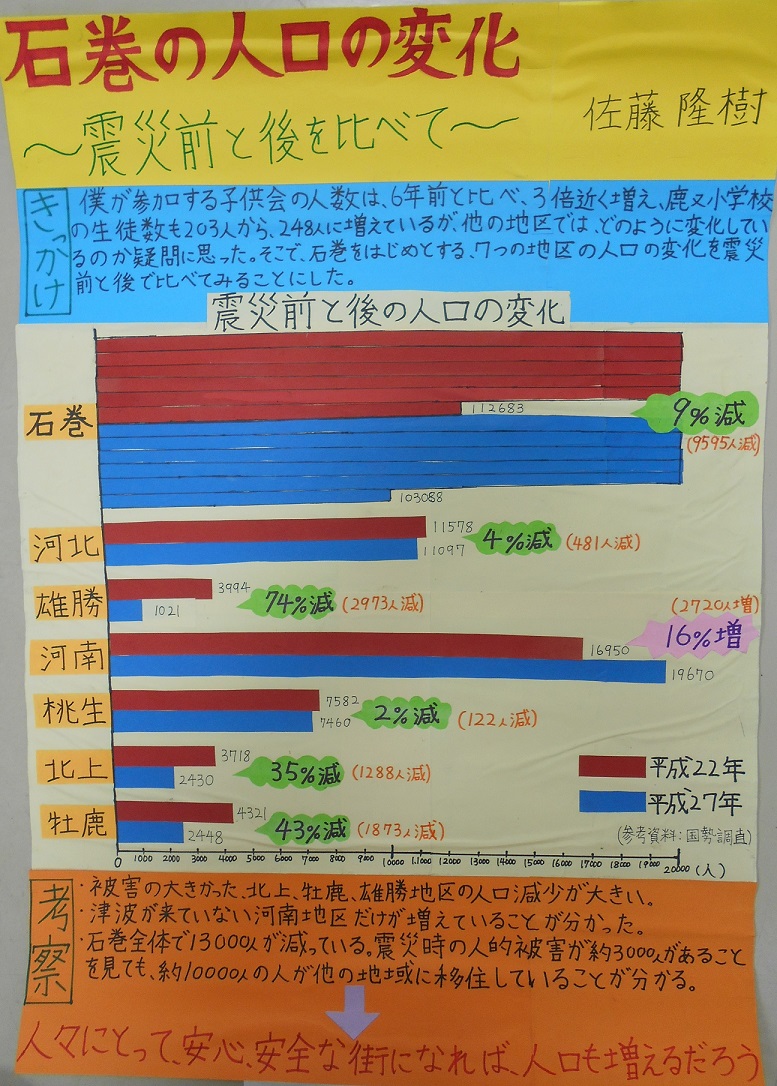 石巻の人口の変化
～震災前と後を比べて～
佐藤隆樹
きっかけ
僕が参加する子供会の人数は、6年前と比べ、3倍近く増え、鹿又小学校
の生徒数も203人から、248人に増えているが、他の地区では、どのように変化してい
るのか疑問に思った。そこで、石巻をはじめとする、7つの地区の人口の変化を震災
前と後で比べてみることにした。
震災前と後の人口の変化
石巻
112683
103088
9%減
(9595人減)
河北
11578
11097
4%減
(481人減)
雄勝
3994
1021
74%減
(2973人減)
河南
16950
19670
(2720人増)
16%増
桃生
7582
7460
2%減
(122人減)
北上
3718
2430
35%減
(1288人減)
牡鹿
4321
2448
43%減
(1873人減)
平成22年
平成27年
(参考資料:国勢調査)
0 1000 2000 3000 4000 5000 6000 7000 8000 9000 10000 11000 12000 13000 14000 15000 16000 17000 18000 19000 20000 (人)
考察
・被害の大きかった、北上、牡鹿、雄勝地区の人口減少が大きい。
・津波が来ていない河南地区だけが増えていることが分かった。
・石巻全体で13000人が減っている。震災時の人的被害が約3000人があること
を見ても、約10000人の人が他の地域に移住していることが分かる。
人々にとって、安心、安全な街になれば、人口も増えるだろう